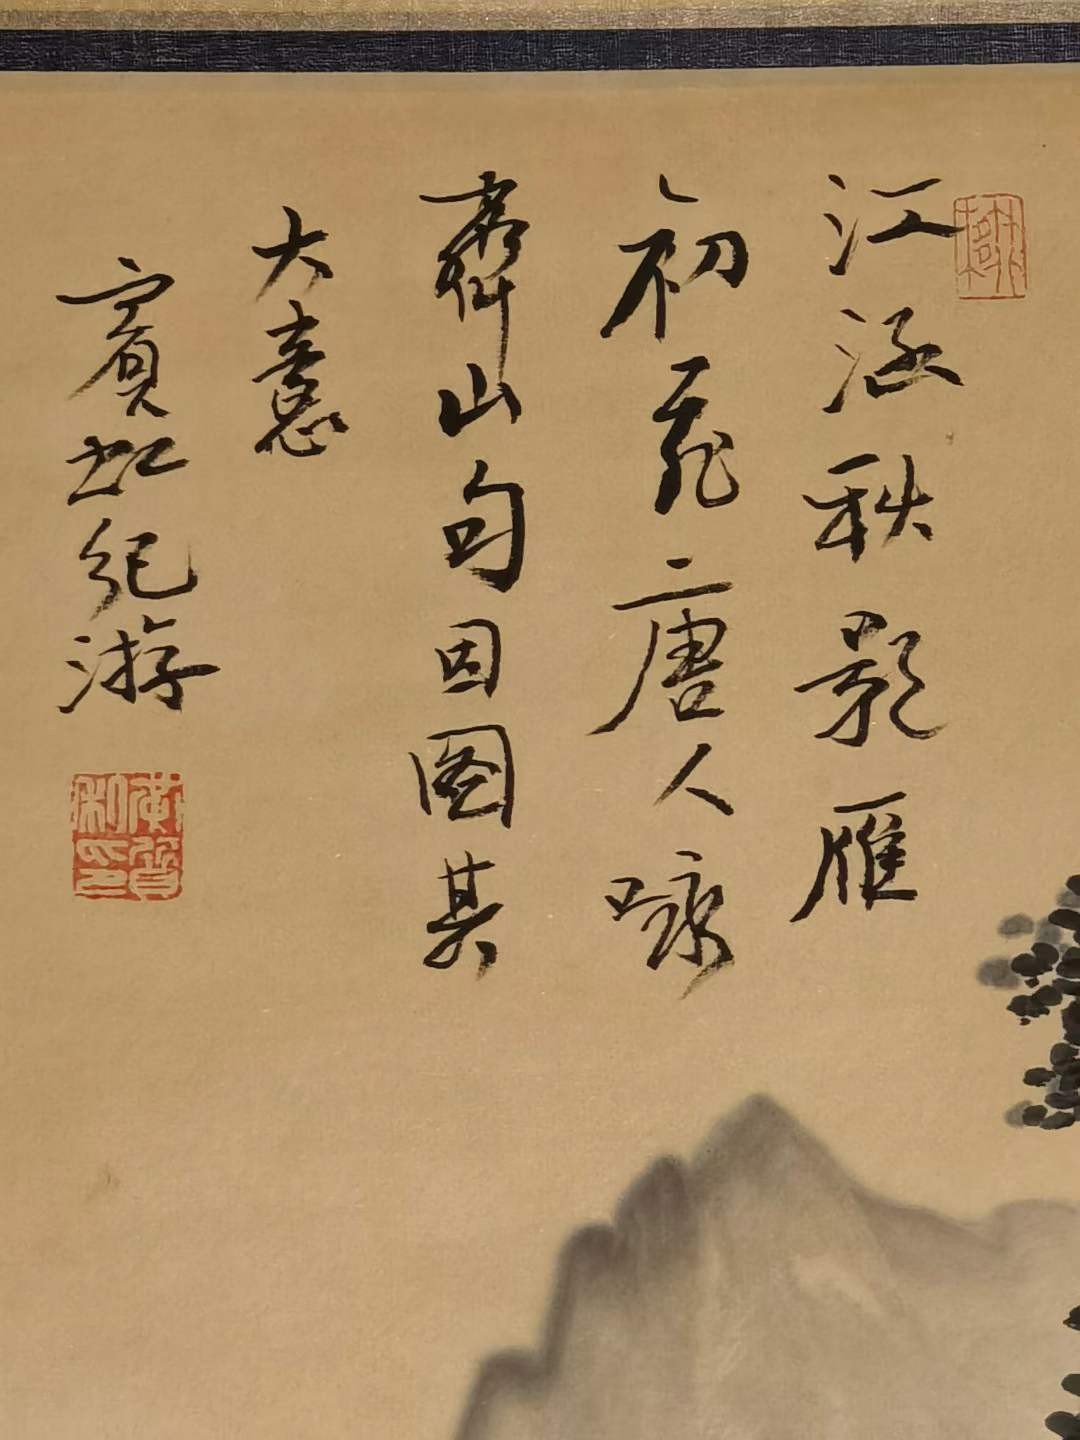 江涵秋影雁
初飛唐人詠
齊山句因圖其
大意
賓虹紀游
黃質私印